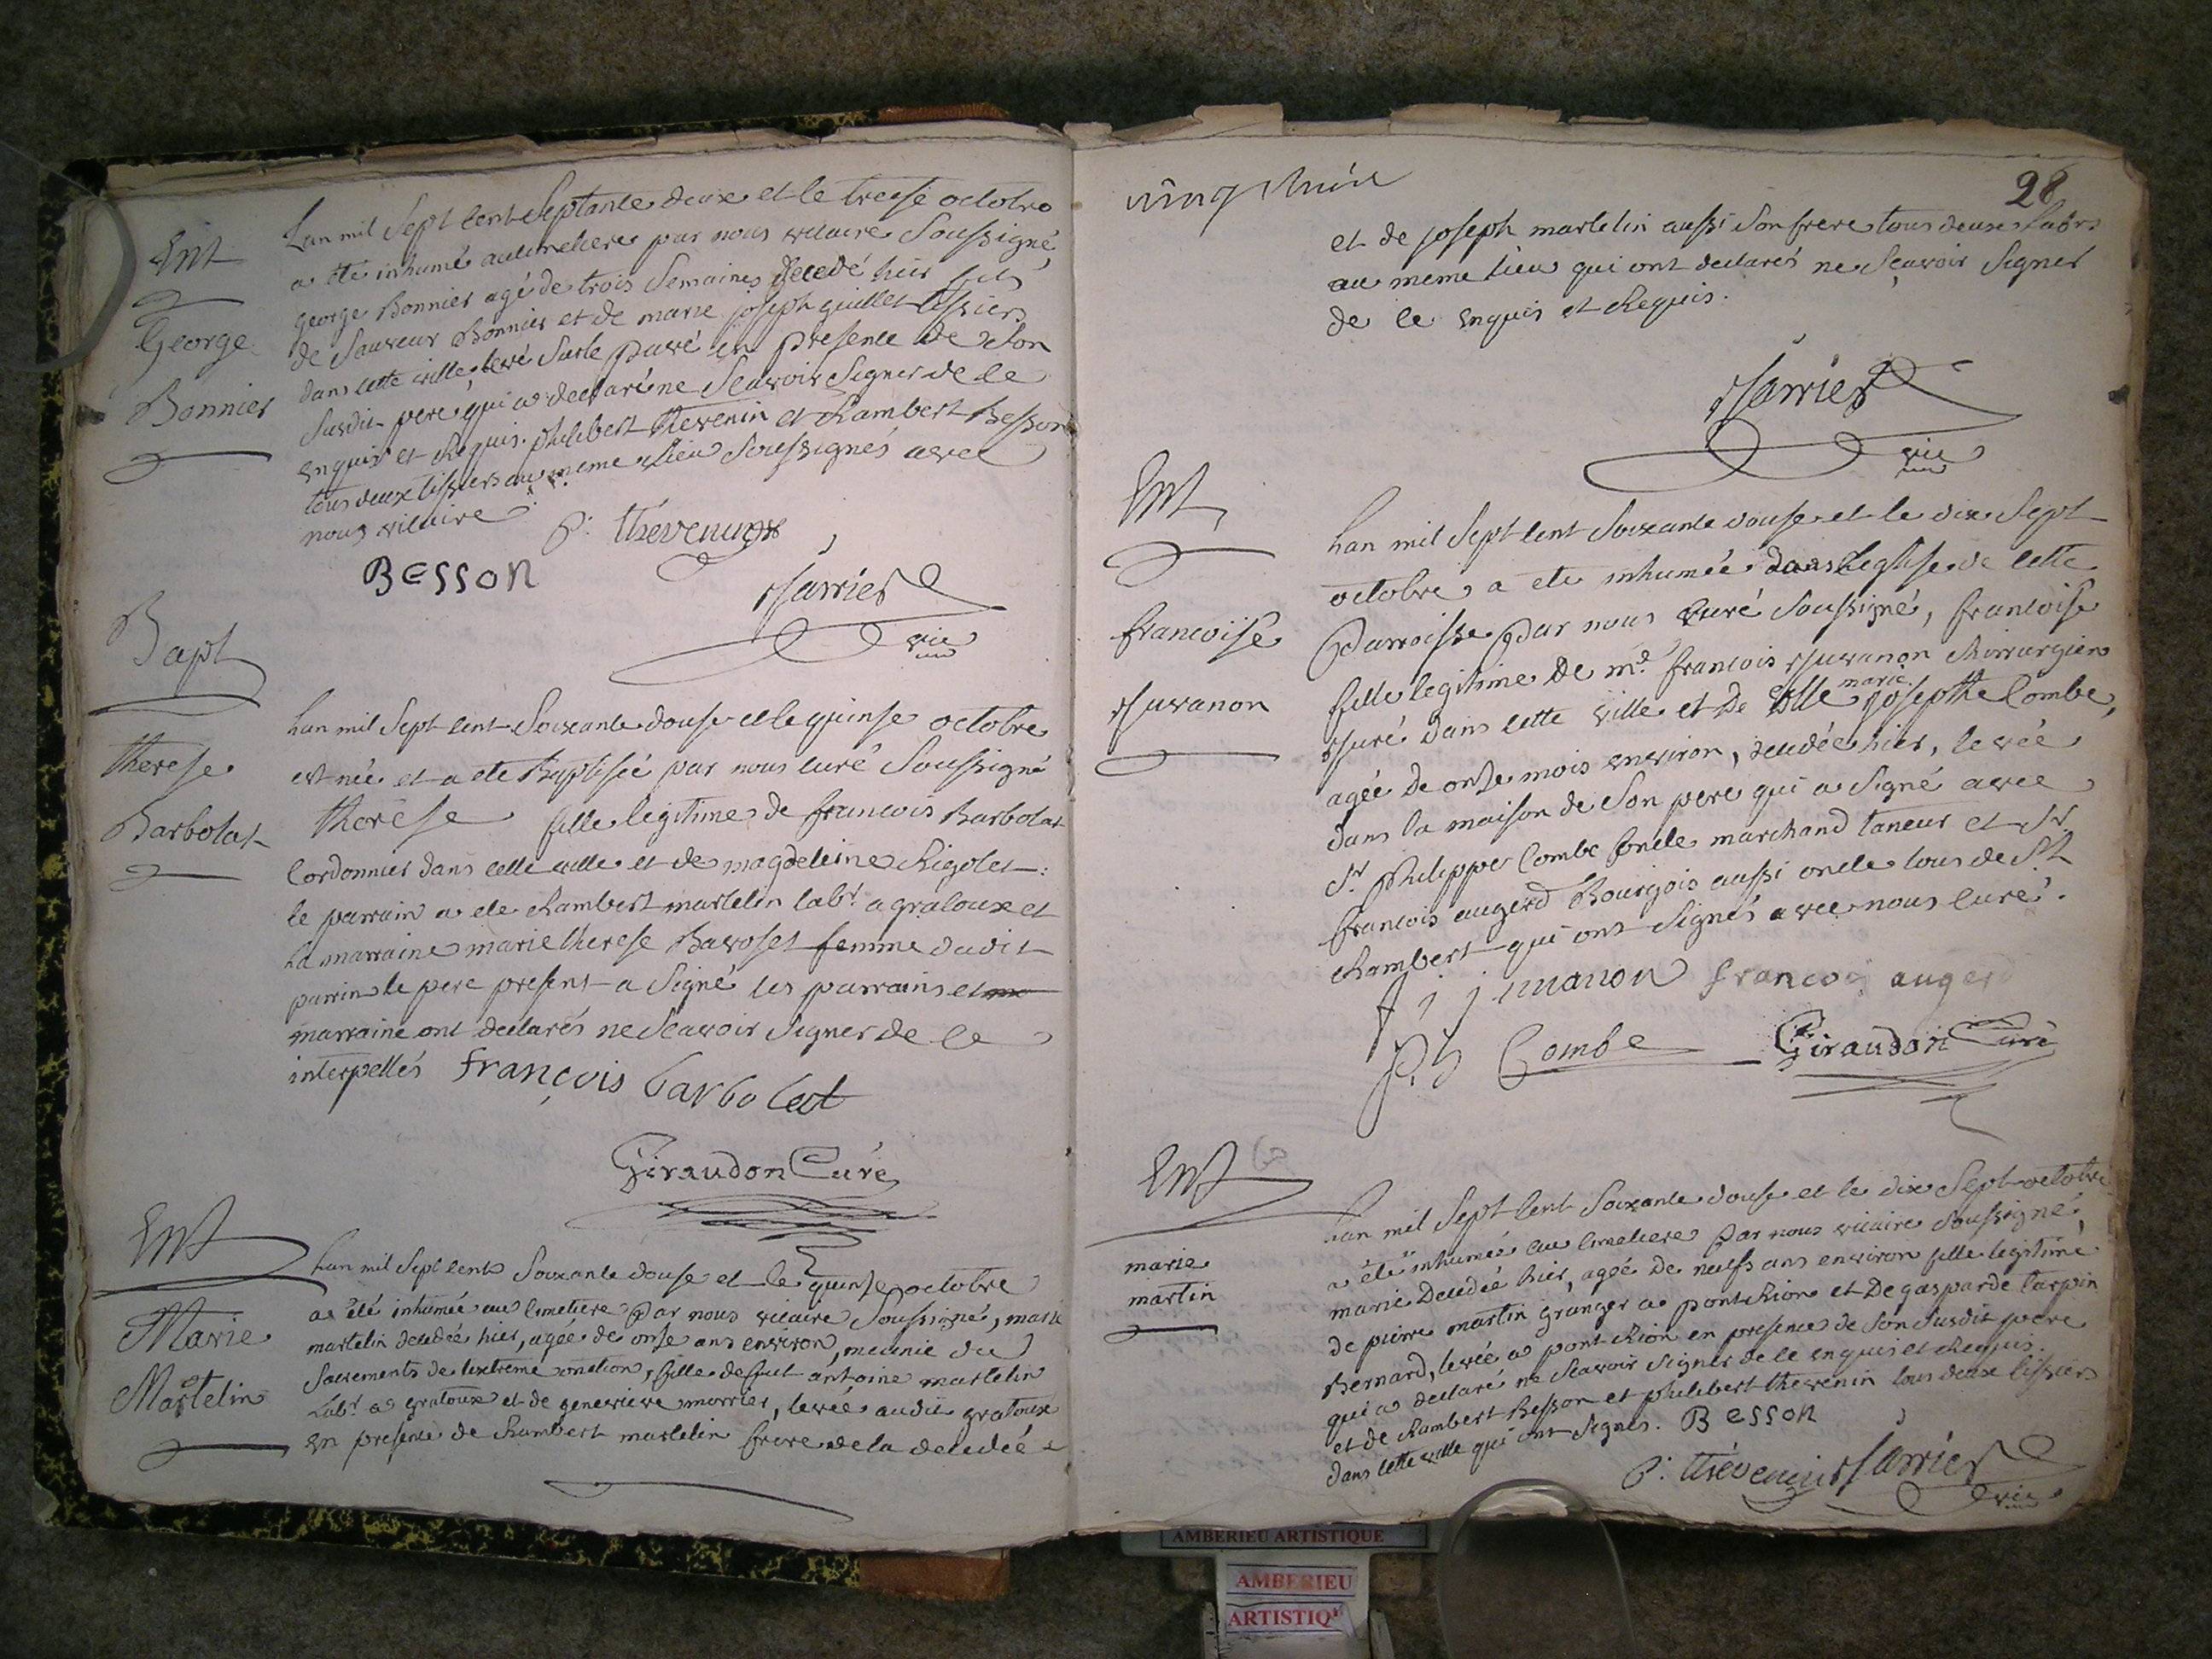 Ent
George
Bonnier
Lan mil Sept Cent Septante deux et le treise octobre
a été inhumé au cimetiere par nous vicaire Soussigné
george Bonnier agé de trois Semaines decedé hier fils
de Sauveur Bonnier et de marie joseph guillet tissier
dans cette ville, levé Sur le pavé en presence de Son
Susdit pere qui a declaré ne Scavoir Signer de ce
enquis et Requis. philibert thevenin et Rambert Besson
tous deux tissiers au meme Lieu Soussignés avec
nous vicaire
P. thevenin
BESSON
vic
Bapt
therese
Barbolat
Lan mil Sept cent Soixante douse et le quinse octobre
est née et a ete Baptisée par nous curé Soussigné
therese fille legitime de francois Barbolat
Cordonnier dans cette ville et de magdeleine Rigolet:
le parrain a ete Rambert martelin labr a gratoux et
La marraine marie therese Bavoset femme dudit
parrin le pere present a Signé les parrains et
marraine ont declarés ne Scavoir Signer de ce
interpellés François barbolat
Giraudon Curé
Ent
Marie
Martelin
Lan mil Sept cent Soixante douse et le quinze octobre
a été inhumée au cimetiere Par nous vicaire Soussigné, marie
martelin decedée hier, agée de onse ans environ, meunie du
Sacrements de lextreme onction, fille de fut antoine martelin
Labr a gratoux et de genevieve morrier, levée audit gratoux
en presence de Rambert martelin frere de la decedée
vingt huit
28
et de joseph martelin aussi Son frere tous deux Labrs
au meme lieu qui ont declarés ne Sçavoir Signer
de ce enquis et Requis.
vic
Ent
francoise
Juvanon
Lan mil Sept cent Soixante douse et le dix Sept
octobre a ete inhumée dans leglise de cette
Parroisse Par nous curé Soussigné, francoise
fille legitime De mr. francois Juvanon Chirurgien
Juré dans cette ville et De marie josepthe Combe,
agée De onze mois environ, decedée hier, levée
dans la maison de Son pere qui a Signé avec
Sr. Philippe Combe oncle marchand taneur et Sr.
francois augerd Bourgois aussi oncle tous de St
Rambert qui ont Signés avec nous curé.
francois augerd
Combe Giraudon Curé
Ent
marie
martin
Lan mil Sept Cent Soixante douse et le dix Sept octobre
a été inhumée au Cimetiere Par nous vicaire Soussigné,
marie Decedée hier, agée De neufs ans environ fille legitime
de pierre martin granger a pont Rion et De gasparde tarpin
Bernard, levée a pont Rion en presence de Son Susdit pere
qui a declaré ne Scavoir Signer de ce enquis et Requis.
et de Rambert Besson et philibert thevenin tous deux tissiers
dans cette ville qui ont Signés. BESSON
P. thévenin
vic
AMBERIEU ARTISTIQUE
AMBERIEU
ARTISTIQ